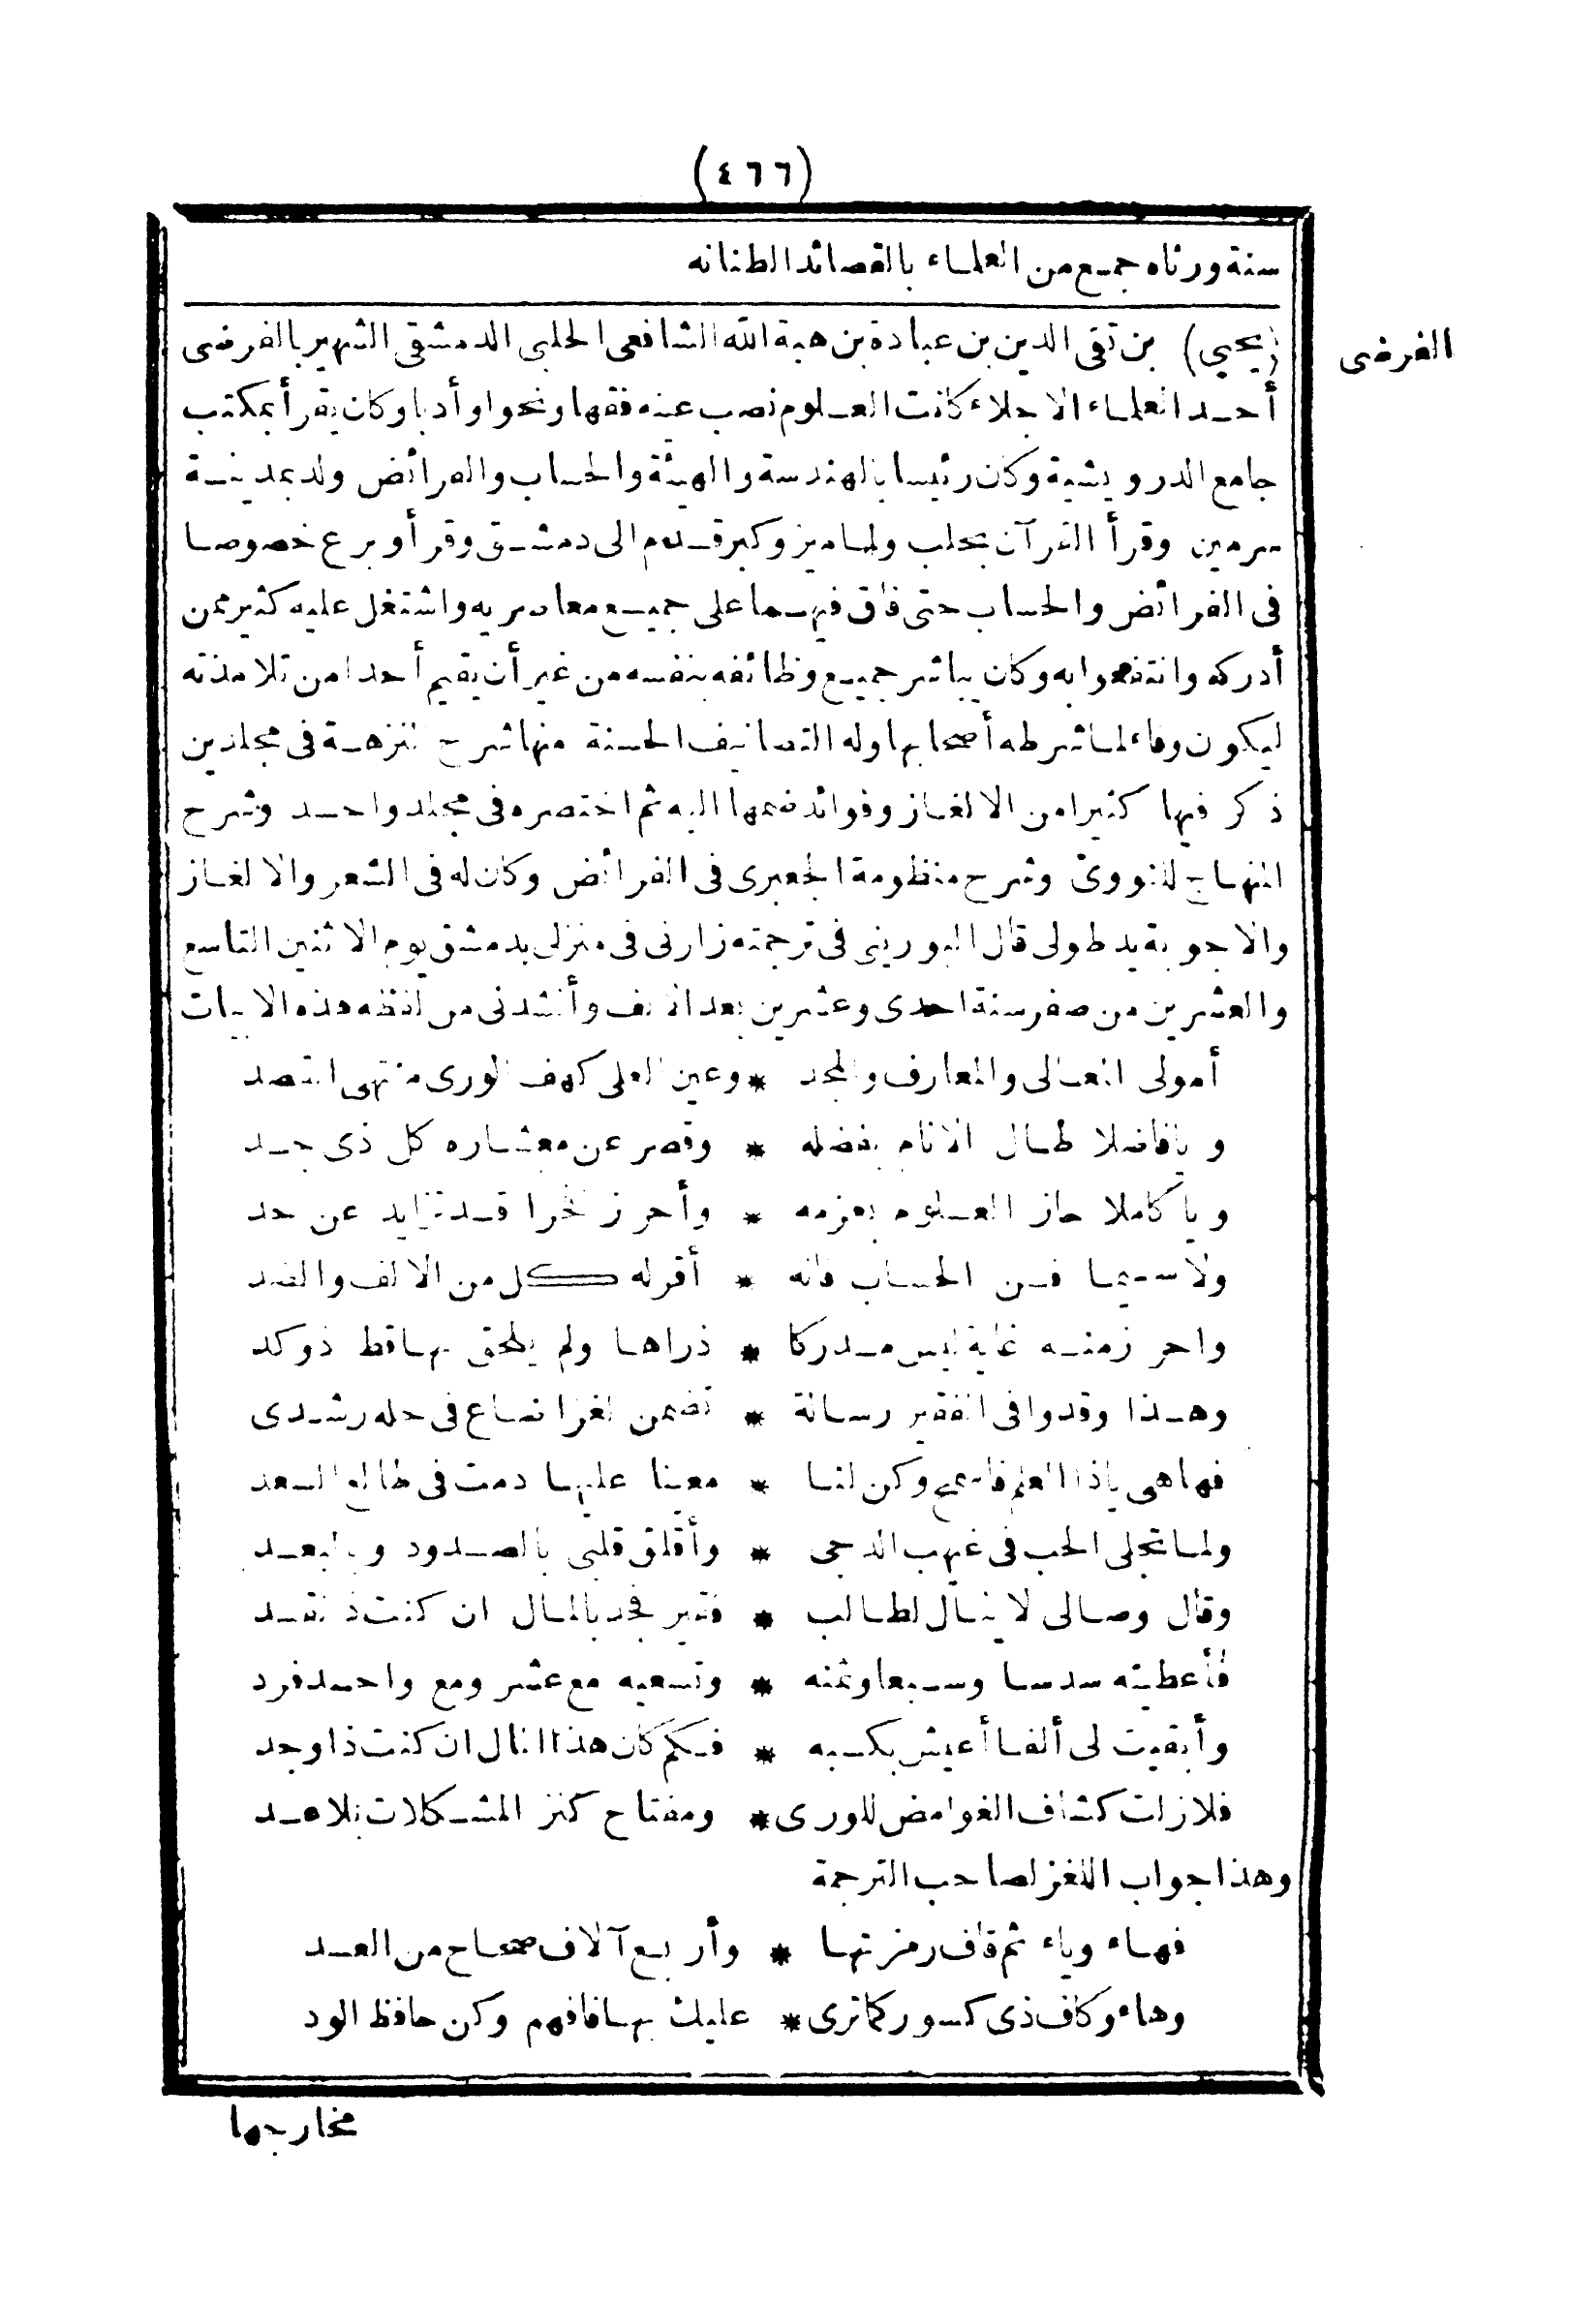 (٤٦٦)
سنة ورثاه جمع من العلماء بالقصائد الطنانه
الفرضى
(يحيى) بن تقى الدين بن عبادة بن هبة الله الشافعى الحلبى الدمشقى الشهير بالفرضى
أحد العلماء الاجلاء كانت العلوم نصب عينه فقها ونحوا وأدبا وكان يقرأ بمكتب
جامع الدرويشية وكان رئيسا بالهندسة والهيئة والحساب والفرائض ولد بمدينة
سرمين وقرأ القرآن بحلب ولما ميز وكبر قدم الى دمشق وقرأ وبرع خصوصا
فى الفرائض والحساب حتى فاق فيهما على جميع معاصريه واشتغل عليه كثير ممن
أدركه وانتفعوا به وكان يباشر جميع وظائفه بنفسه من غير أن يقيم أحدا من تلامذته
ليكون وفاء لما شرطه أصحابها وله التصانيف الحسنة منها شرح النزهة فى مجلدين
ذكر فيها كثيرا من الالغاز وفوائد ضمها اليه ثم اختصره فى مجلد واحد وشرح
المنهاج للنووى وشرح منظومة الجعبرى فى الفرائض وكان له فى الشعر والالغاز
والاجوبة يد طولى قال البورينى فى ترجمته زارنى فى منزلى بدمشق يوم الاثنين التاسع
والعشرين من صفر سنة احدى وعشرين بعد الالف وأنشدنى من لفظه هذه الابيات
أمولى المعالى والمعارف والمجد * وعين العلى كهف الورى منتهى القصد
ويا فاضلا طال الانام بفضله * وقصر عن معشاره كل ذى جد
ويا كاملا حاز العلوم بعزمه * وأحرز فخرا قد تزايد عن حد
ولا سيما فن الحساب فانه * أقر له كل من الالف والضد
واحرز منه غاية ليس مدركا * ذراها ولم يلحق بها قط ذو كد
وهذا وقد وافى الفقير رسالة * تضمن لغزا ضاع فى حله رشدى
فها هى يا ذا العلم فاسمع وكن لنا * معينا عليها دمت فى طالع السعد
ولما تجلى الحب فى غيهب الدجى * وأقلق قلبى بالصدود وبالبعد
وقال وصالى لا ينال لطالب * فقير فجد بالمال ان كنت ذا نقد
فأعطيته سدسا وسبعا وثمنه * وتسعيه مع عشر ومع واحد فرد
وأبقيت لى ألفا أعيش بكسبه * فكم كان هذا المال ان كنت ذا وجد
فلا زلت كشاف الغوامض للورى * ومفتاح كنز المشكلات بلا صد
وهذا جواب اللغز لصاحب الترجمة
فهاء وياء ثم قاف رمزتها * وأربع آلاف صحاح من العد
وهاء وكاف ذى كسور كما ترى * عليك بها فافهم وكن حافظ الود
مخارجها